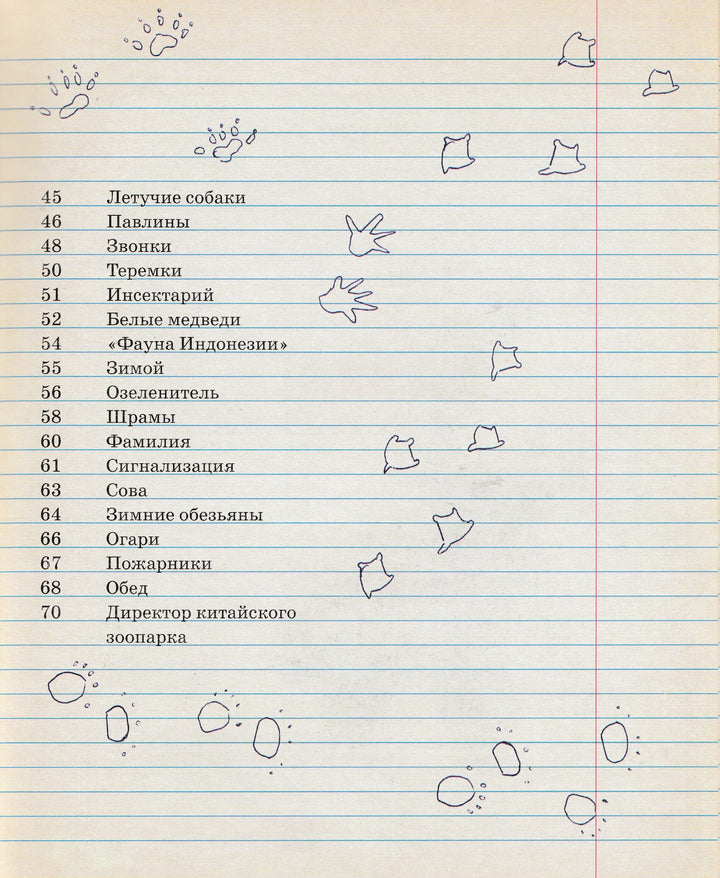 45 Летучие собаки
46 Павлины
48 Звонки
50 Теремки
51 Инсектарий
52 Белые медведи
54 «Фауна Индонезии»
55 Зимой
56 Озеленитель
58 Шрамы
60 Фамилия
61 Сигнализация
63 Сова
64 Зимние обезьяны
66 Огари
67 Пожарники
68 Обед
70 Директор китайского
зоопарка